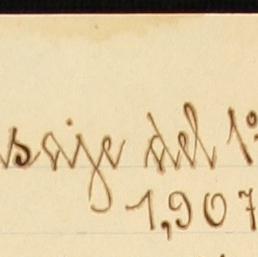 saje del 1º
1,907